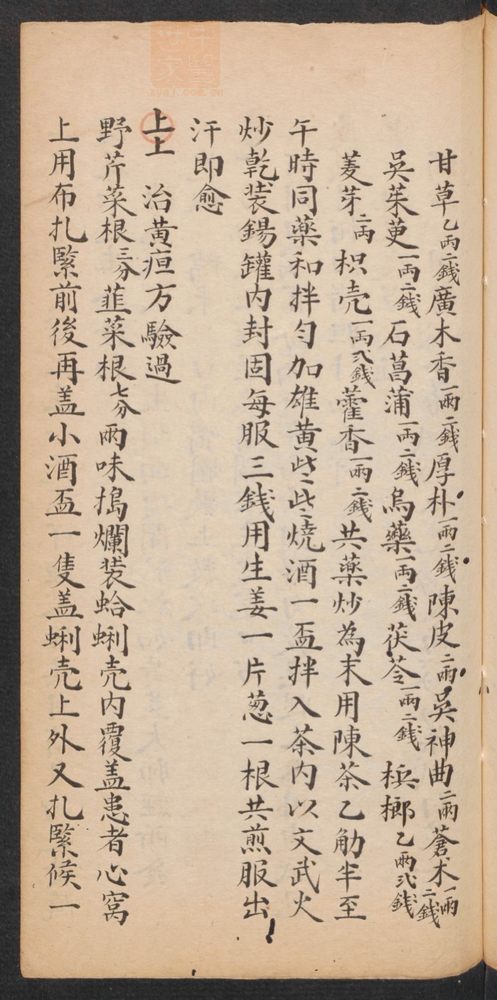 甘草乙兩二錢廣木香一兩二錢厚朴一兩二錢陳皮二兩吳神曲二兩蒼术一兩二錢
吳茱萸一兩二錢石菖蒲一兩二錢烏藥一兩二錢茯苓一兩二錢檳榔乙兩弍錢
麦芽二兩枳壳一兩弍錢藿香一兩二錢共藥炒為末用陳茶乙觔半至
午時同藥和拌匀加雄黃些些燒酒一盃拌入茶内以文武火
炒乾装錫罐内封固每服三錢用生姜一片葱一根共煎服出
汗即愈
上土 治黃疸方驗過
野芹菜根三分韮菜根七分兩味搗爛裝蛤蜊壳内覆盖患者心窩
上用布扎緊前後再盖小酒盃一隻盖蜊壳上外又扎緊候一